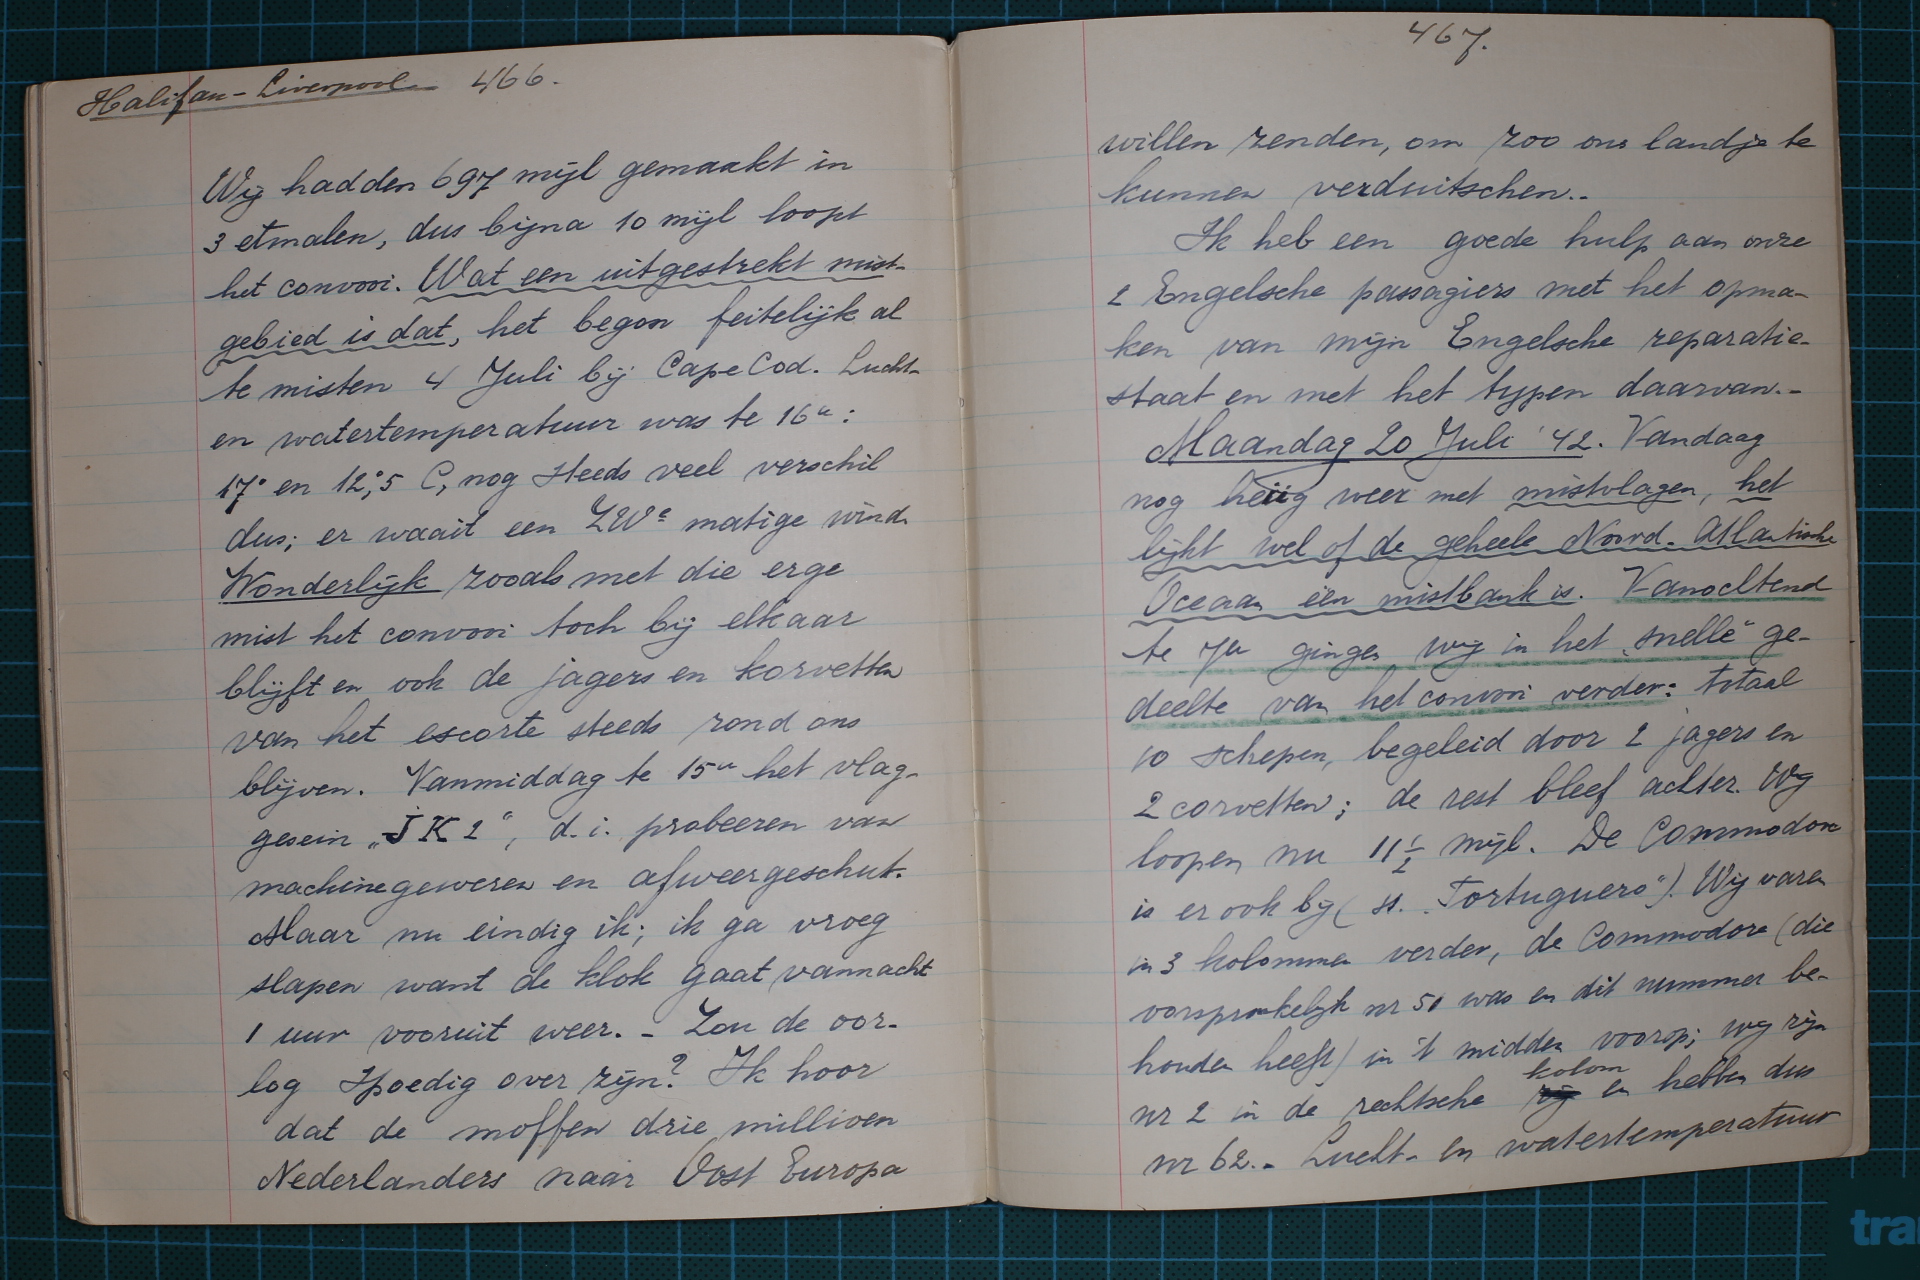 Halifax - Liverpool 466.
Wij hadden 697 mijl gemaakt in
3 etmalen, dus bijna 10 mijl loopt
het convooi. Wat een uitgestrekt mist-
gebied is dat, het begon feitelijk al
te misten 4 Juli bij Cape Cod. Lucht-
en watertemperatuur was te 16u:
17° en 12,°5 C, nog steeds veel verschil
dus; er waait een ZWe matige wind.
Wonderlijk zooals met die erge
mist het convooi toch bij elkaar
blijft en ook de jagers en korvetten
van het escorte steeds rond ons
blijven. Vanmiddag te 15u het vlag-
gesein „JK2", d.i. probeeren van
machinegeweren en afweergeschut.
Maar nu eindig ik; ik ga vroeg
slapen want de klok gaat vannacht
1 uur vooruit weer. - Zou de oor-
log spoedig over zijn? Ik hoor
dat de moffen drie millioen
Nederlanders naar Oost Europa
467.
willen zenden, om zoo ons landje te
kunnen verduitschen.-
Ik heb een goede hulp aan onze
2 Engelsche passagiers met het opma-
ken van mijn Engelsche reparatie-
staat en met het typen daarvan.-
Maandag 20 Juli '42. Vandaag
nog heiig weer met mistvlagen, het
lijkt wel of de geheele Noord-Atlantische
Oceaan één mistbank is. Vanochtend
te 7u gingen wij in het „snelle" ge-
deelte van het convooi verder: totaal
10 schepen, begeleid door 2 jagers en
2 corvetten; de rest bleef achter. Wij
loopen nu 11½ mijl. De Commodore
is er ook bij (ss. „Tortuguero"). Wij varen
in 3 kolommen verder, de Commodore (die
oorspronkelijk nr 51 was en dit nummer be-
houden heeft) in 't midden voorop; wij zijn
nr 2 in de rechtsche kolom en hebben dus
nr 62.- Lucht- en watertemperatuur
tra